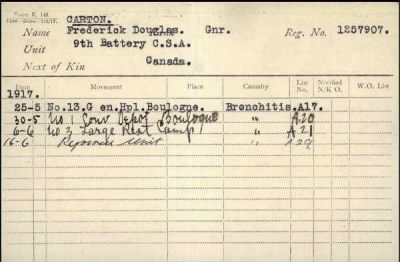 Form R. 148.
CARTON.
Name Frederick Douglas. Gnr. Reg. No. 1257907.
Unit 9th Battery C.S.A.
Next of Kin Canada.
Date Movement Place Casualty List No. Notified N/K O. W.O. List
1917.
25-5 No.13.G en.Hpl.Boulogne. Bronchitis. A17.
30-5 No 1 Conv Depot Boulogne " A20
6-6 No 3 Large Rest Camp " A21
16-6 Rejoined Unit " A28